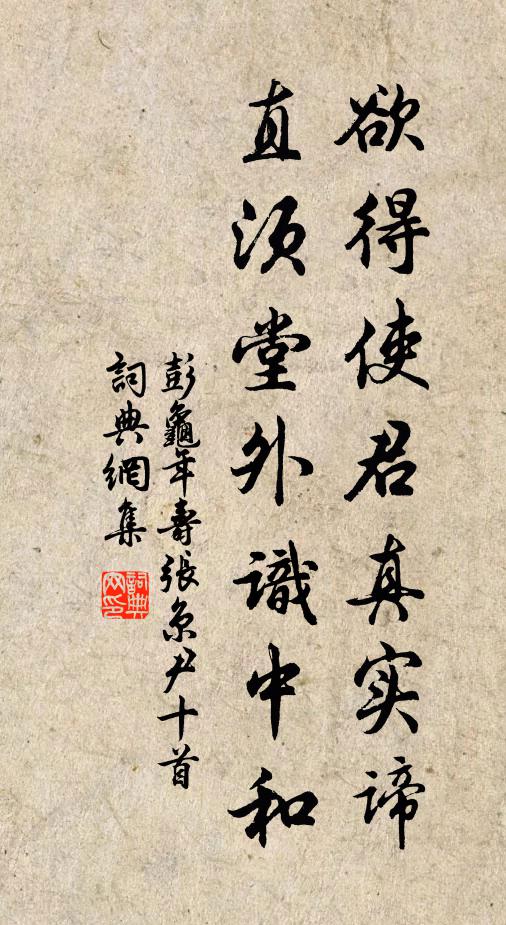 欲得使君真实谛
直须堂外識中和
彭龜年壽張京尹十首
詞典網集
詞典网印